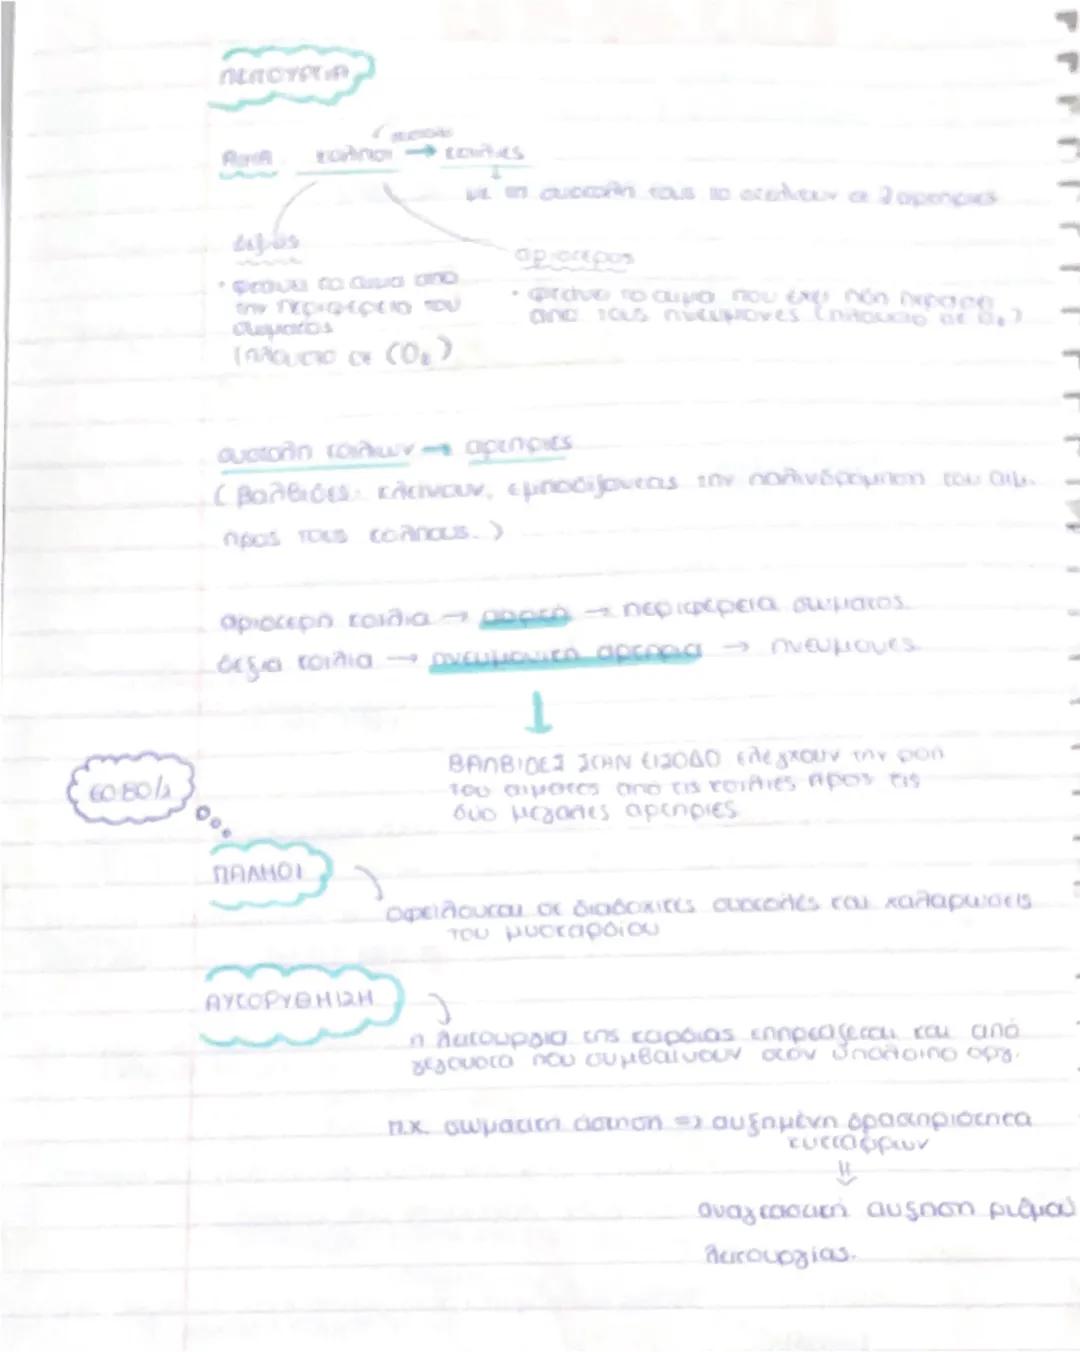 ΛΕΙΤΟΥΡΓΙΑ
συστολή
ΑΙΜΑ κόλποι → κοιλίες
με τη συστολή τους το στέλνουν σε 2 αρτηρίες
δεξιός
• φτάνει το αίμα από
την περιφέρεια του
σώματος
(πλούσιο σε CO₂)
αριστερός
• φτάνει το αίμα που έχει ήδη περάσει
από τους πνεύμονες (πλούσιο σε O₂)
συστολή κοιλιών → αρτηρίες
(βαλβίδες: κλείνουν, εμποδίζοντας την παλινδρόμηση του αιμ.
προς τους κόλπους.)
αριστερή κοιλία → αορτή → περιφέρεια σώματος
δεξιά κοιλία → πνευμονική αρτηρία → πνεύμονες
↓
ΒΑΛΒΙΔΕΣ ΣΤΗΝ ΕΙΣΟΔΟ ελέγχουν την ροή
του αίματος από τις κοιλίες προς τις
δύο μεγάλες αρτηρίες
60-80/λ
ΠΑΛΜΟΙ
οφείλονται σε διαδοχικές συστολές και χαλαρώσεις
του μυοκαρδίου
ΑΥΤΟΡΥΘΜΙΣΗ
η λειτουργία της καρδιάς επηρεάζεται και από
γεγονότα που συμβαίνουν στον υπόλοιπο οργ.
π.χ. σωματική άσκηση => αυξημένη δραστηριότητα
κυττάρων
⇓
αναγκαστική αύξηση ρυθμού
λειτουργίας.